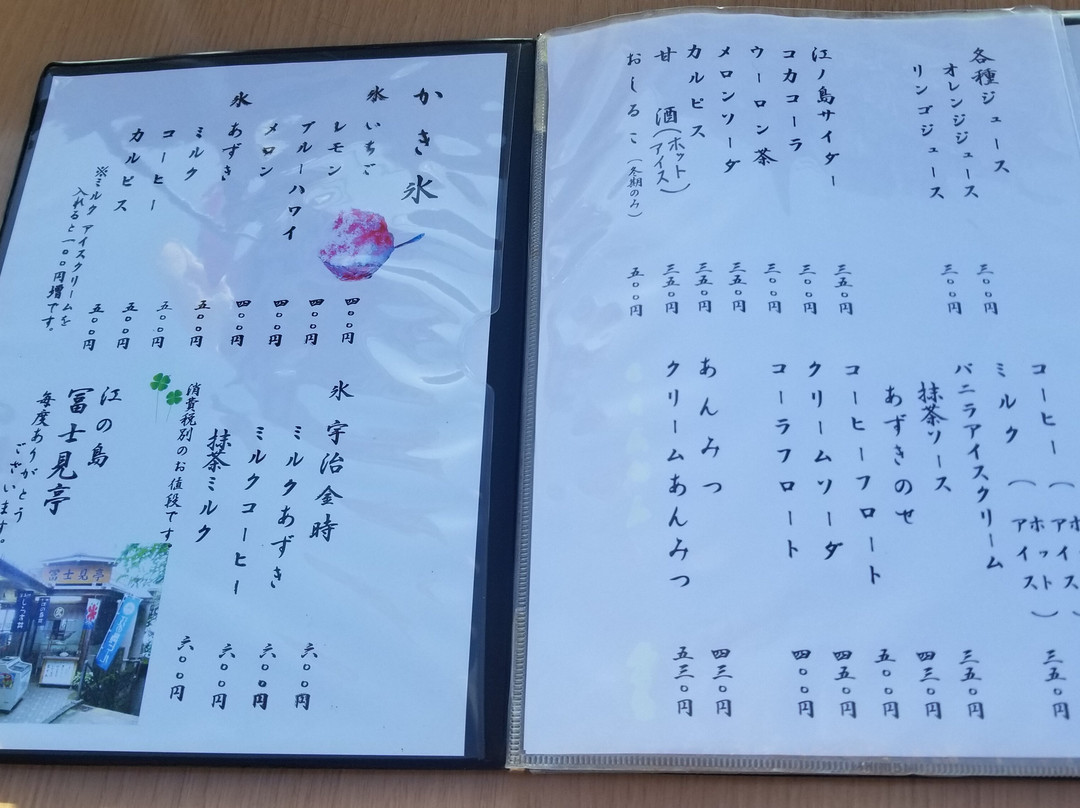 各種ジュース
オレンジジュース 三〇〇円
リンゴジュース 三〇〇円
江ノ島サイダー 三五〇円
コカコーラ 三〇〇円
ウーロン茶 三〇〇円
メロンソーダ 三五〇円
カルピス 三五〇円
甘酒(ホット アイス) 三五〇円
おしるこ(冬期のみ) 五〇〇円
コーヒー(ホット アイス)
ミルク(ホット アイス) 三五〇円
バニラアイスクリーム 三五〇円
抹茶ソース 四三〇円
あずきのせ 五〇〇円
コーヒーフロート 四五〇円
クリームソーダ 四〇〇円
コーラフロート
あんみつ 四三〇円
クリームあんみつ 五三〇円
かき氷
氷いちご 四〇〇円
レモン 四〇〇円
ブルーハワイ 四〇〇円
メロン 四〇〇円
氷あずき 五〇〇円
ミルク 五〇〇円
コーヒー 五〇〇円
カルピス 五〇〇円
※ミルク アイスクリームを
入れると一〇〇円増です。
氷宇治金時 六〇〇円
ミルクあずき 六〇〇円
ミルクコーヒー 六〇〇円
抹茶ミルク 六〇〇円
消費税別のお値段です。
江の島
冨士見亭
毎度ありがとう
ございます。
冨士見亭